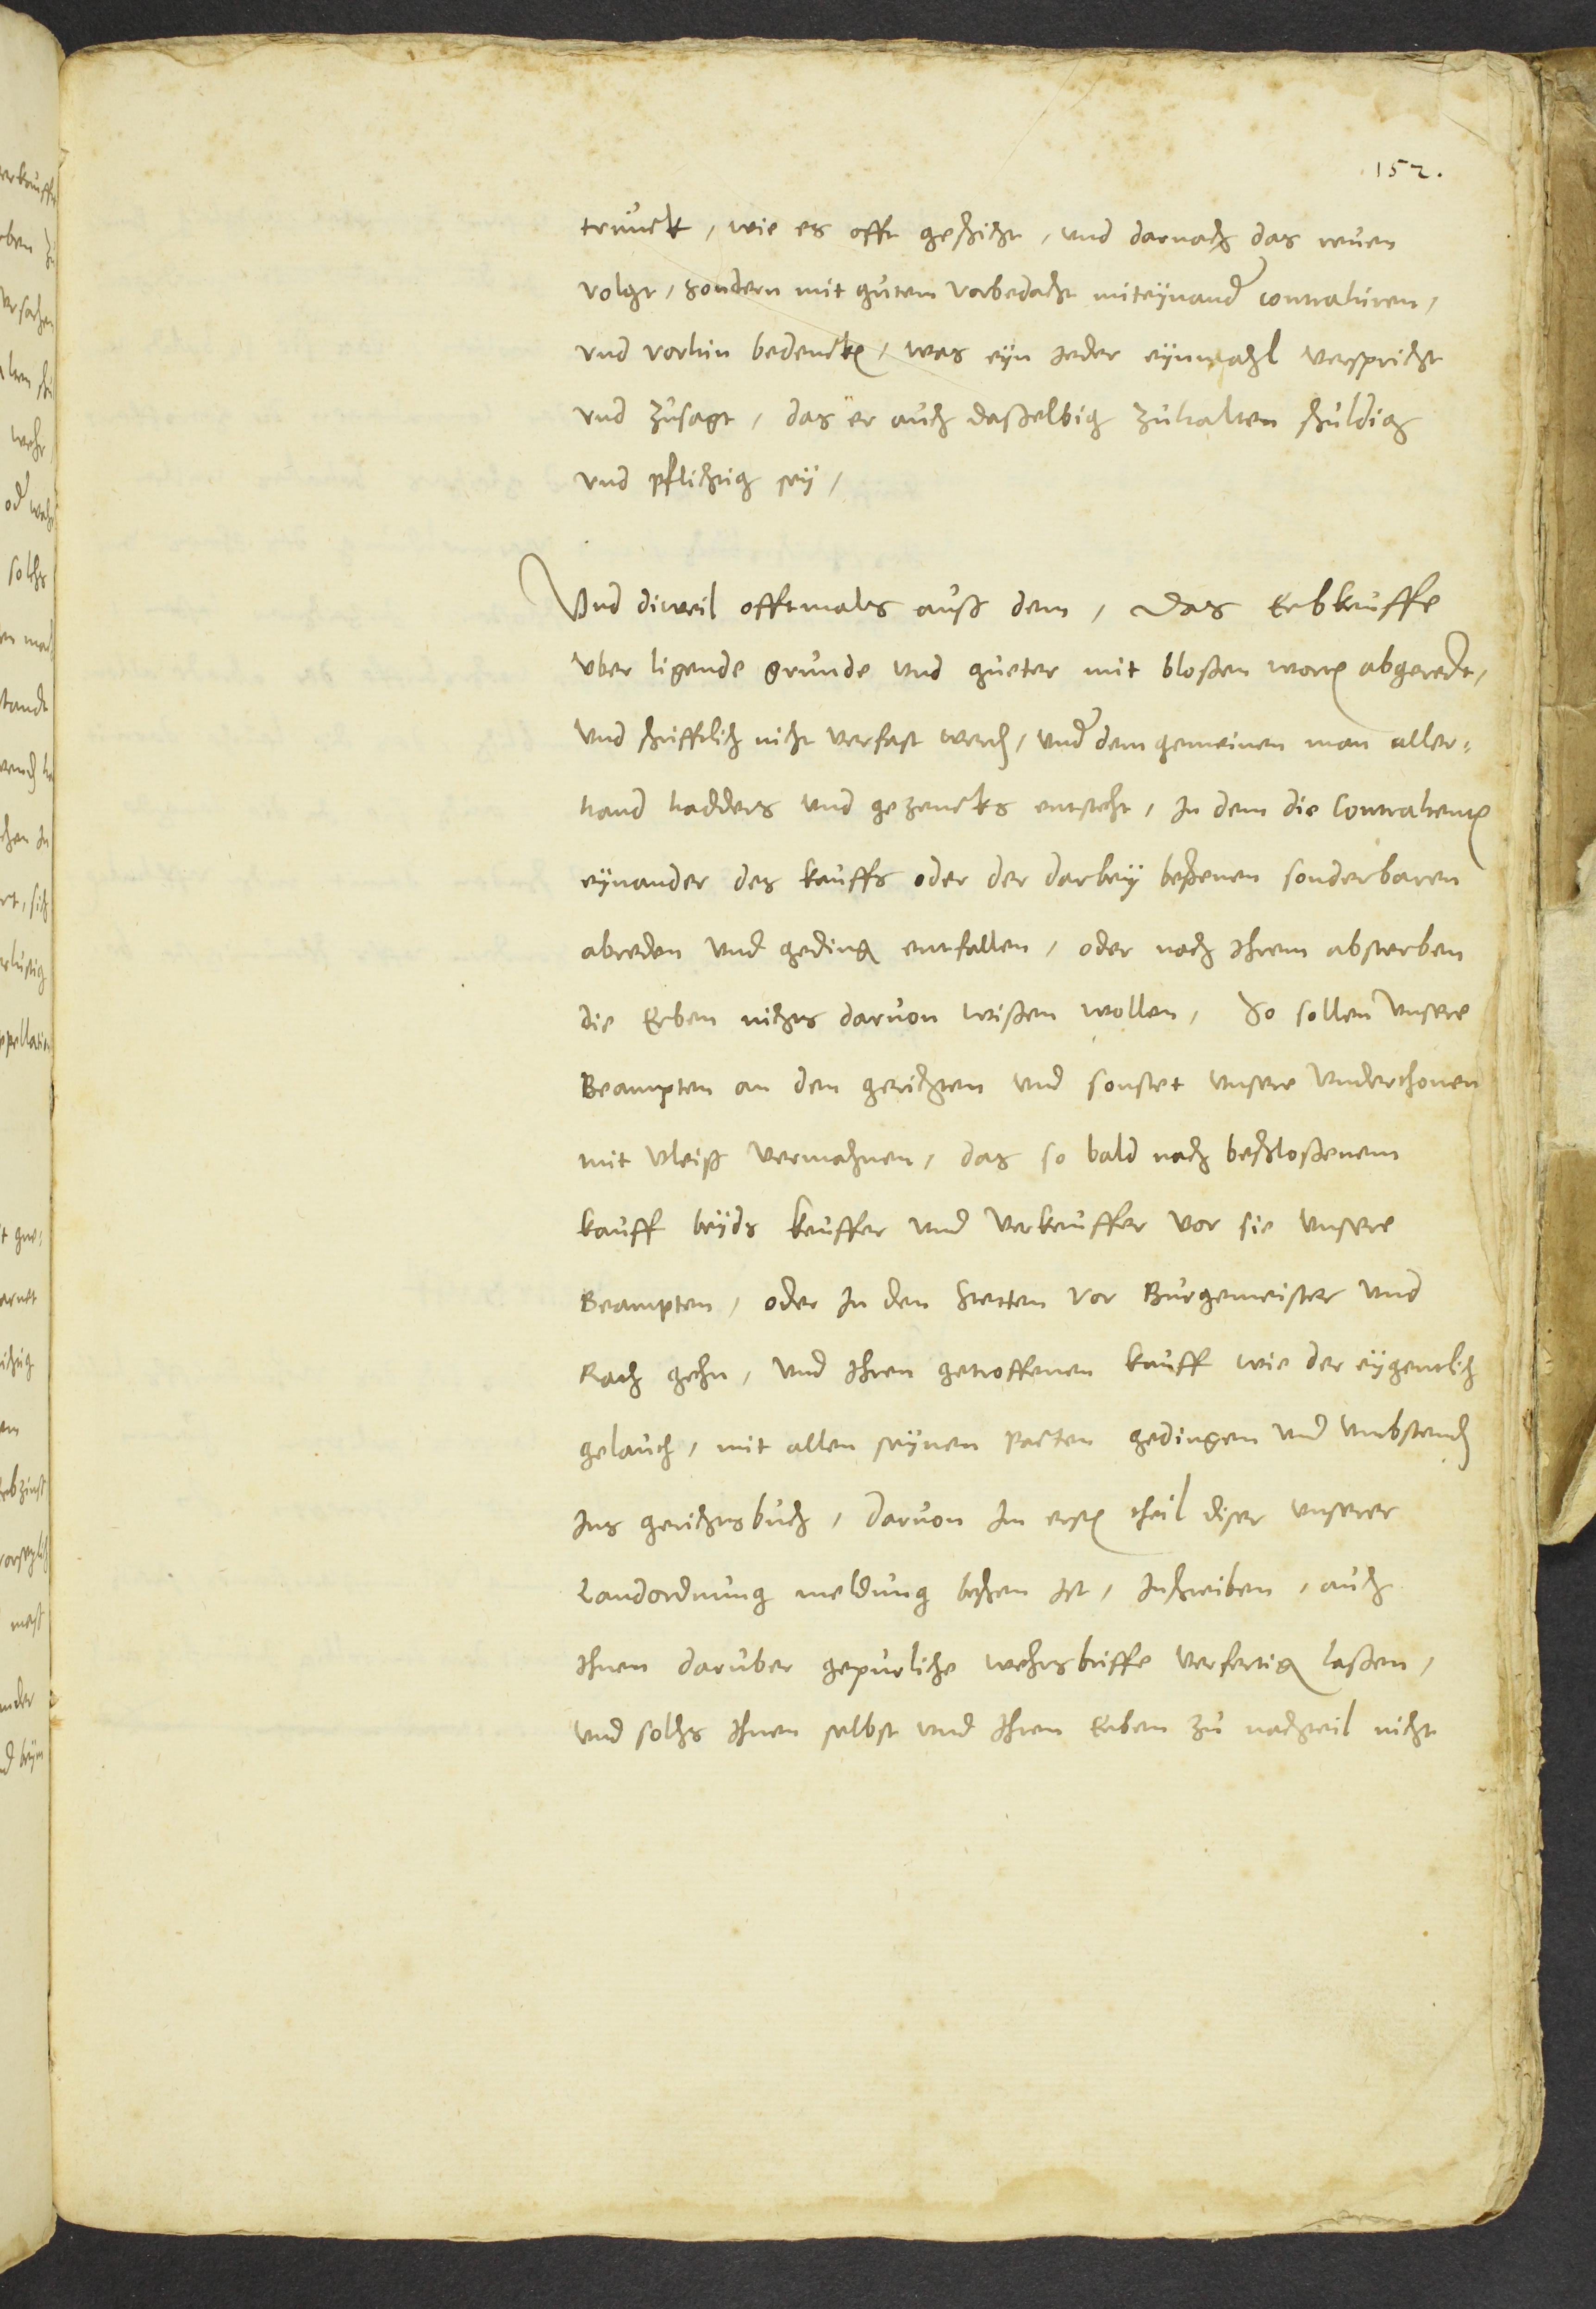 152.
trunck, wie es offt geschicht, und darnach das reuen
volgt, sondern mit gutem vorbedacht miteÿnander contrahiren,
und vorhin bedencken, was eÿn Jeder eÿnmahl verspricht
und zusagt, das er auch dasselbig zuhalten schuldig
und pflichtig seÿ,
Und diweil offtmals auß dem, Das Erbkeuffe
uber ligende grunde und gueter mit bloßen worten abgeredt,
und schrifftlich nicht verfast werden, under dem gemeinen man aller=
hand hadders und gezencks entsteht, In dem die Contrahenten
eÿnander des kauffs oder der darbeÿ beschenen sonderbaren
abreden und geding entfallen, oder nach Ihrem absterben
die Erben nichts darvon wißen wollen, So sollen unsere
Beampten an den gerichten und sonstet unsere Underthonen
mit vleiß vermahnen, das so bald nach beschloßenem
kauff beÿds keuffer und verkeuffer vor sie unsere
Beampten, oder In den Stetten vor Burgemeister und
Rath gehn, und Ihren getroffenen kauff wie der eÿgentlich
gelaut, mit allen seÿnen pacten gedingen und umbstenden
Ins gerichtsbuch, darvon Im ersten theil diser unserer
Landordnung meldung beschen Ist, Inschreiben, auch
Ihnen daruber gepurliche wehrsbriffe verfertigen laßen,
und solchs Ihnen selbst und Ihren Erben zu nachteil nicht